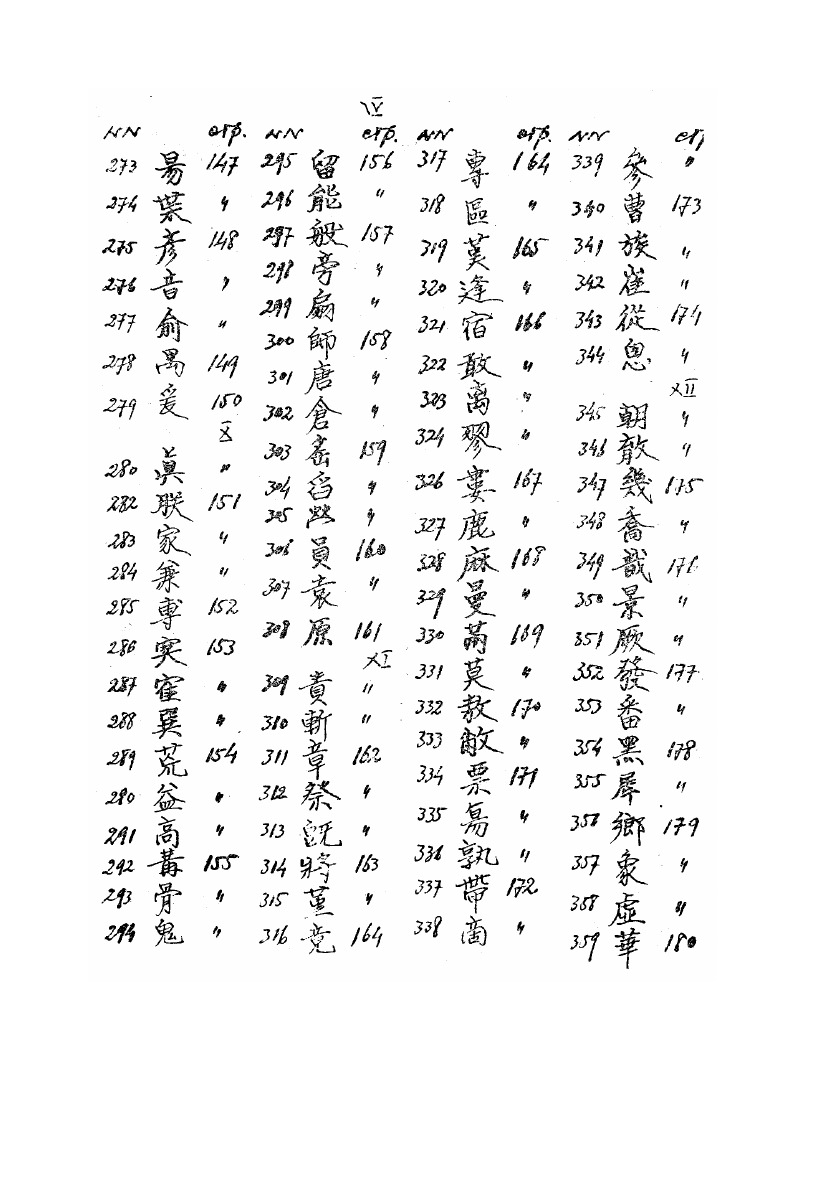 IV
NN стр.
273 昜 147
274 葉 〃
275 彥 148
276 音 〃
277 俞 〃
278 禺 149
279 爰 150
X
280 眞 〃
282 朕 151
283 家 〃
284 兼 〃
285 專 152
286 寞 153
287 寉 〃
288 巽 〃
289 荒 154
280 益 〃
291 高 〃
292 冓 155
293 骨 〃
294 鬼 〃
NN стр.
295 留 156
296 能 〃
297 般 157
298 旁 〃
299 扇 〃
300 師 158
301 唐 〃
302 倉 〃
303 䍃 159
304 舀 〃
305 〃
306 員 160
307 袁 〃
308 原 161
XI
309 責 〃
310 斬 〃
311 章 162
312 祭 〃
313 既 〃
314 將 163
315 堇 〃
316 竟 164
NN стр.
317 專 164
318 區 〃
319 莫 165
320 逢 〃
321 宿 166
322 敢 〃
323 离 〃
324 翏 〃
326 婁 167
327 鹿 〃
328 麻 168
329 曼 〃
330 㒼 169
331 莫 〃
332 敖 170
333 敝 〃
334 票 171
335 昜 〃
336 孰 〃
337 帶 172
338 啇 〃
NN стр
339 參 〃
340 曹 173
341 族 〃
342 崔 〃
343 從 174
344 悤 〃
XII
345 朝 〃
346 散 〃
347 幾 175
348 喬 〃
349 戠 176
350 景 〃
351 厥 〃
352 發 177
353 番 〃
354 黑 178
355 犀 〃
356 鄉 179
357 象 〃
358 虛 〃
359 華 180